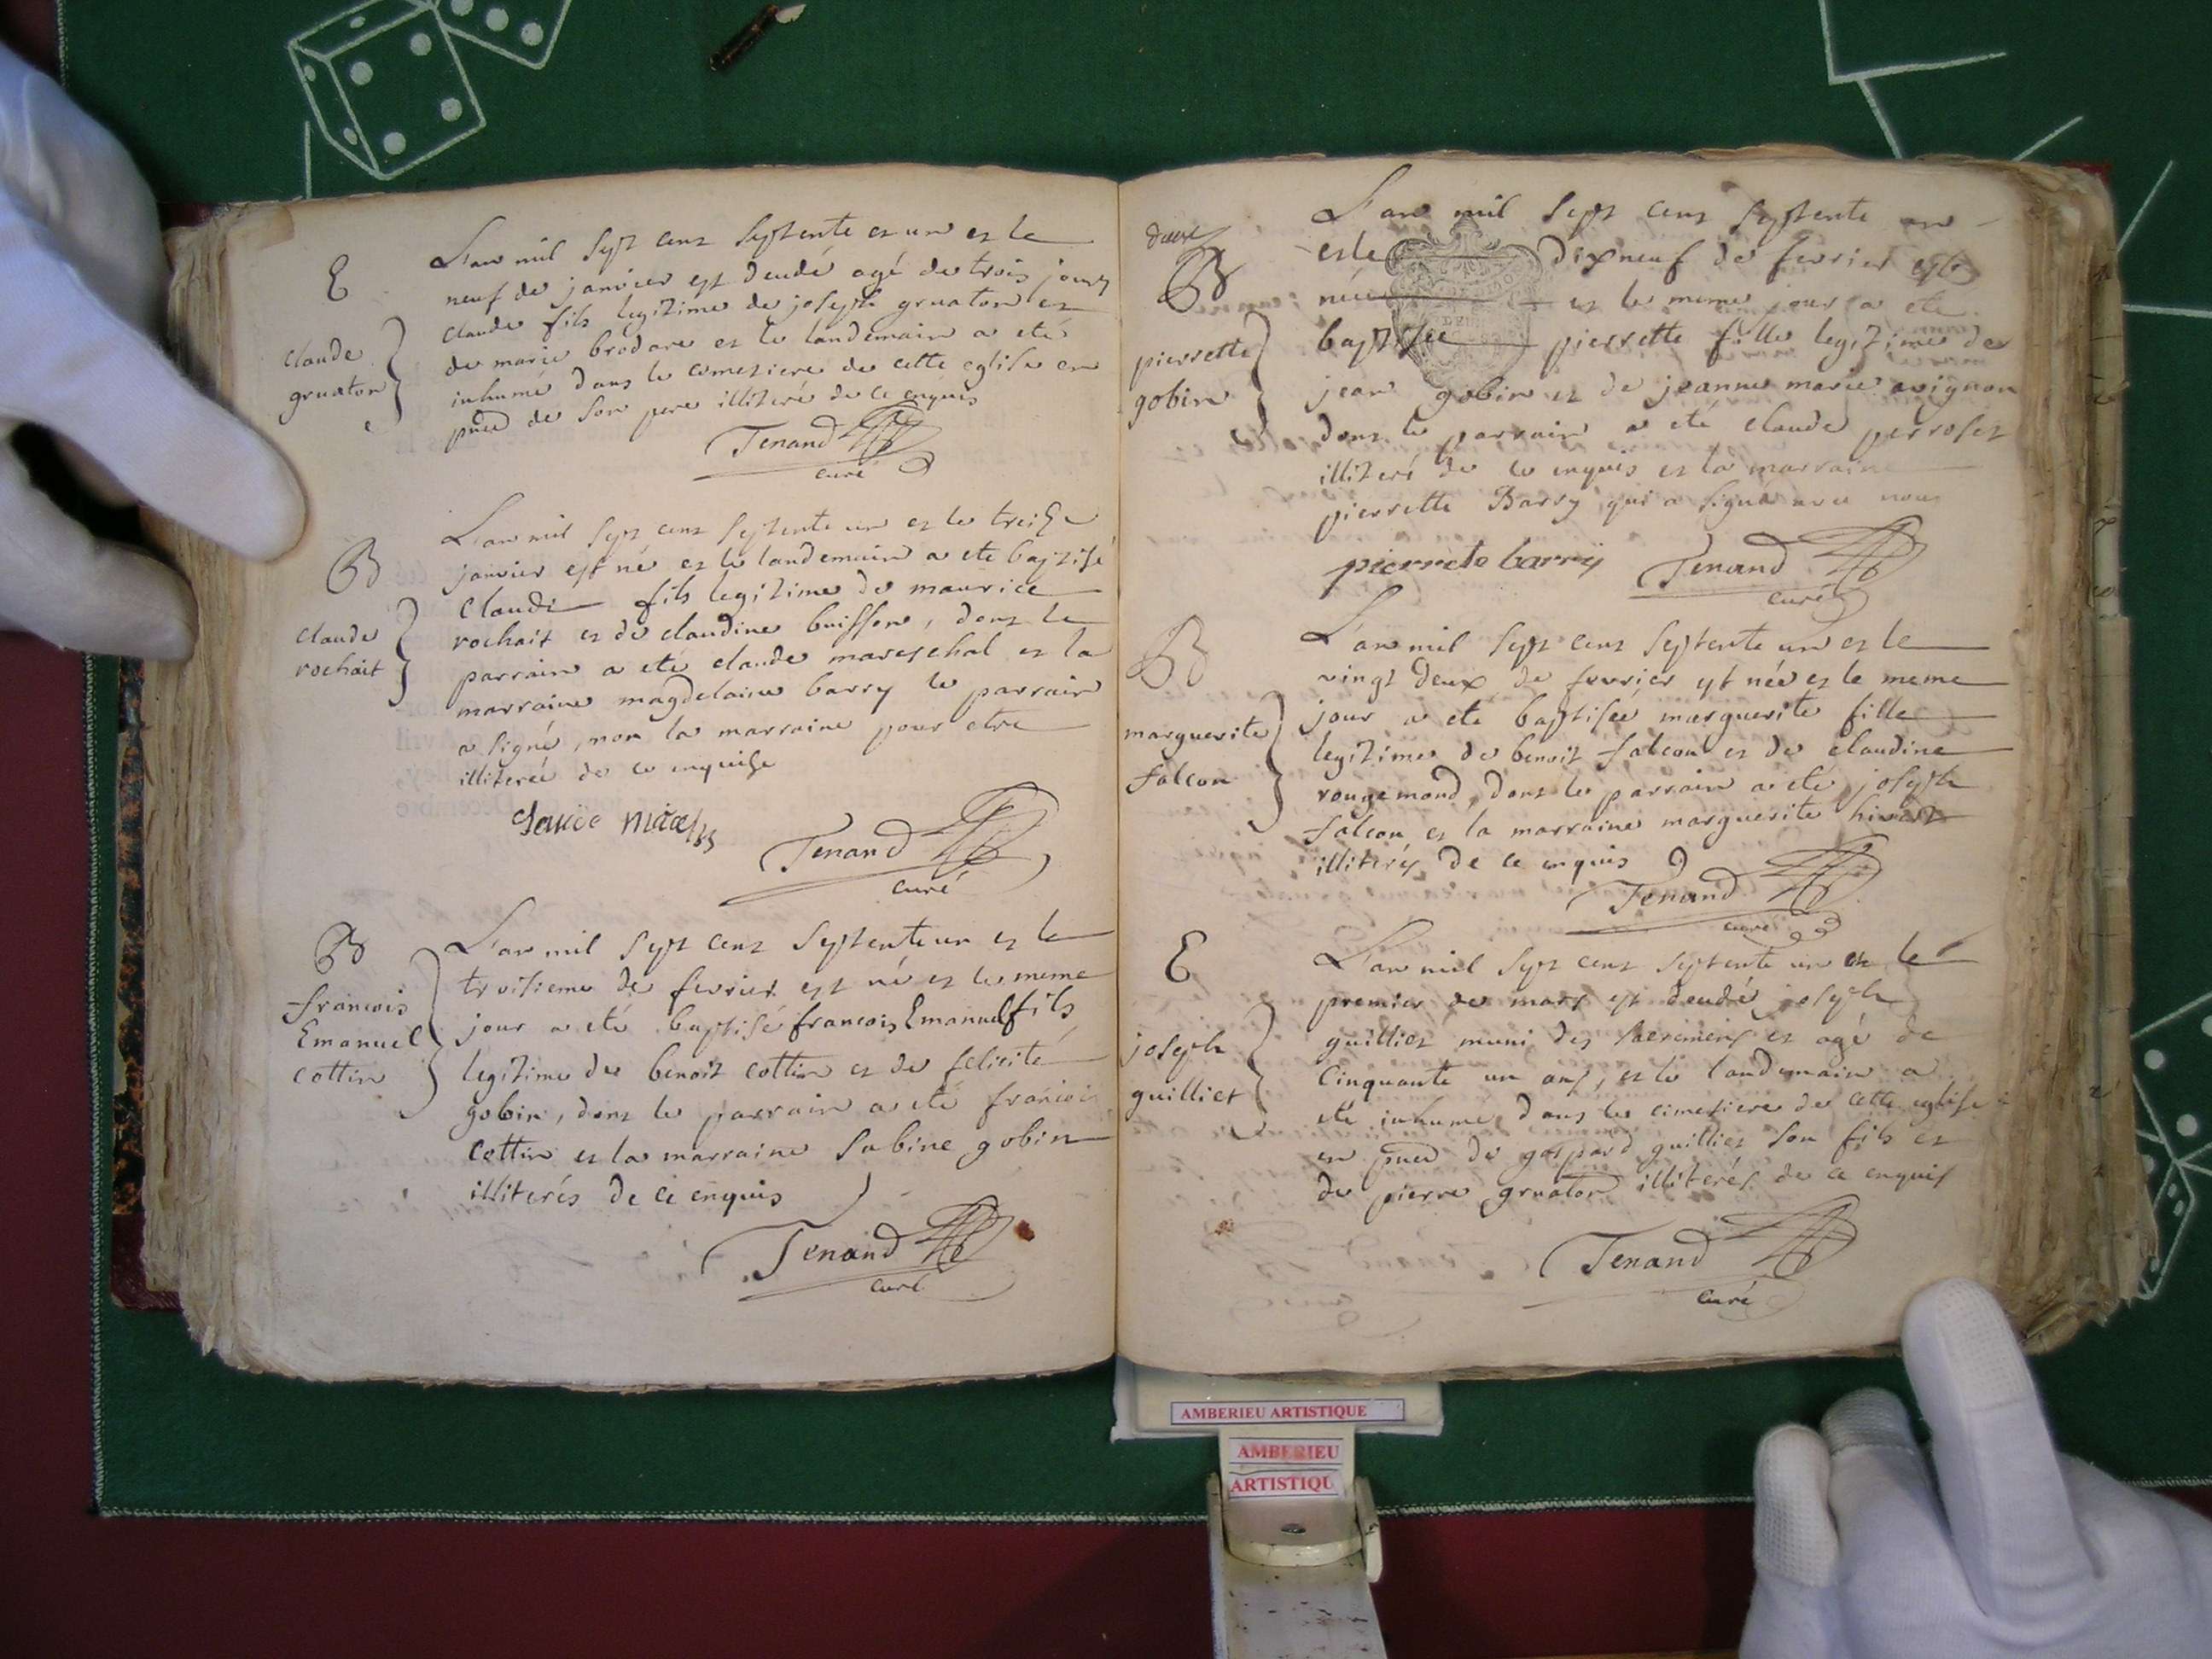 E
claude
gruaton
L'an mil sept cent septente et un et le
neuf de janvier est deudé agé de trois jours
claude fils legitime de joseph gruaton et
de marie brodare et le landemain a eté
inhumé dans le cimetiere de cette eglise en
pnce de son pere illiteré de ce enquis
Tenand
curé
B
claude
rochait
L'an mil sept cent septente un et le treise
janvier est né et le landemain a ete baptisé
claude fils legitime de maurice
rochait et de claudine buisson, dont le
parrain a eté claude mareschal et la
marraine magdelaine barry le parrain
a signé, non la marraine pour etre
illiterée de ce enquise
claude
Tenand
curé
B
francois
Emanuel
cottin
L'an mil sept cent septente un et le
troisieme de fevrier est né et le meme
jour a eté baptisé francois Emanuel fils
legitime de benoit cottin et de felicité
gobin, dont le parrain a eté francois
cottin et la marraine sabine gobin
illiterés de ce enquis
Tenand
curé
B
pierrette
gobin
L'an mil sept cent septente un
et le dixneuf de fevrier est
née et le meme jour a eté
baptisée pierrette fille legitime de
jean gobin et de jeanne marie avignon
dont le parrain a eté claude perroset
illiteré de ce enquis et la marraine
pierrette Barry qui a signé avec nous
pierrete barry
Tenand
curé
B
marguerite
falcon
L'an mil sept cent septente un et le
vingt deux de fevrier est née et le meme
jour a eté baptisée marguerite fille
legitime de benoit falcon et de claudine
rougemond, dont le parrain a eté joseph
falcon et la marraine marguerite
illiterés de ce enquis
Tenand
curé
E
joseph
guilliet
L'an mil sept cent septente un et le
premier de mars est deudé joseph
guilliet muni des sacremens et agé de
cinquante un ans, et le landemain a
eté inhumé dans le cimetiere de cette eglise
en pnce de gaspard guilliet son fils et
de pierre gruaton illiterés de ce enquis
Tenand
curé
AMBERIEU ARTISTIQUE
AMBERIEU
ARTISTIQU